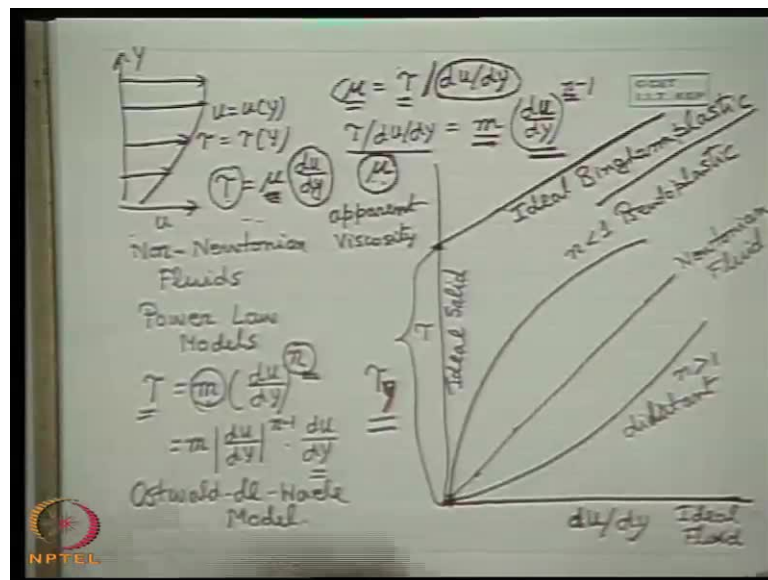 Y
u = u(y)
τ = τ(y)
τ = μ du/dy
u
Non-Newtonian
Fluids
Power Law
Models
τ = m (du/dy)^n
= m |du/dy|^(n-1) · du/dy
Ostwald-de-Waele
Model
μ = τ / du/dy
τ/du/dy = m (du/dy)^(n-1)
μ
apparent
Viscosity
I.I.T. KGP
Ideal Bingham plastic
n<1
Newtonian
Fluid
n>1
dilatant
τ
Ideal Solid
τy
du/dy
Ideal
Fluid
NPTEL